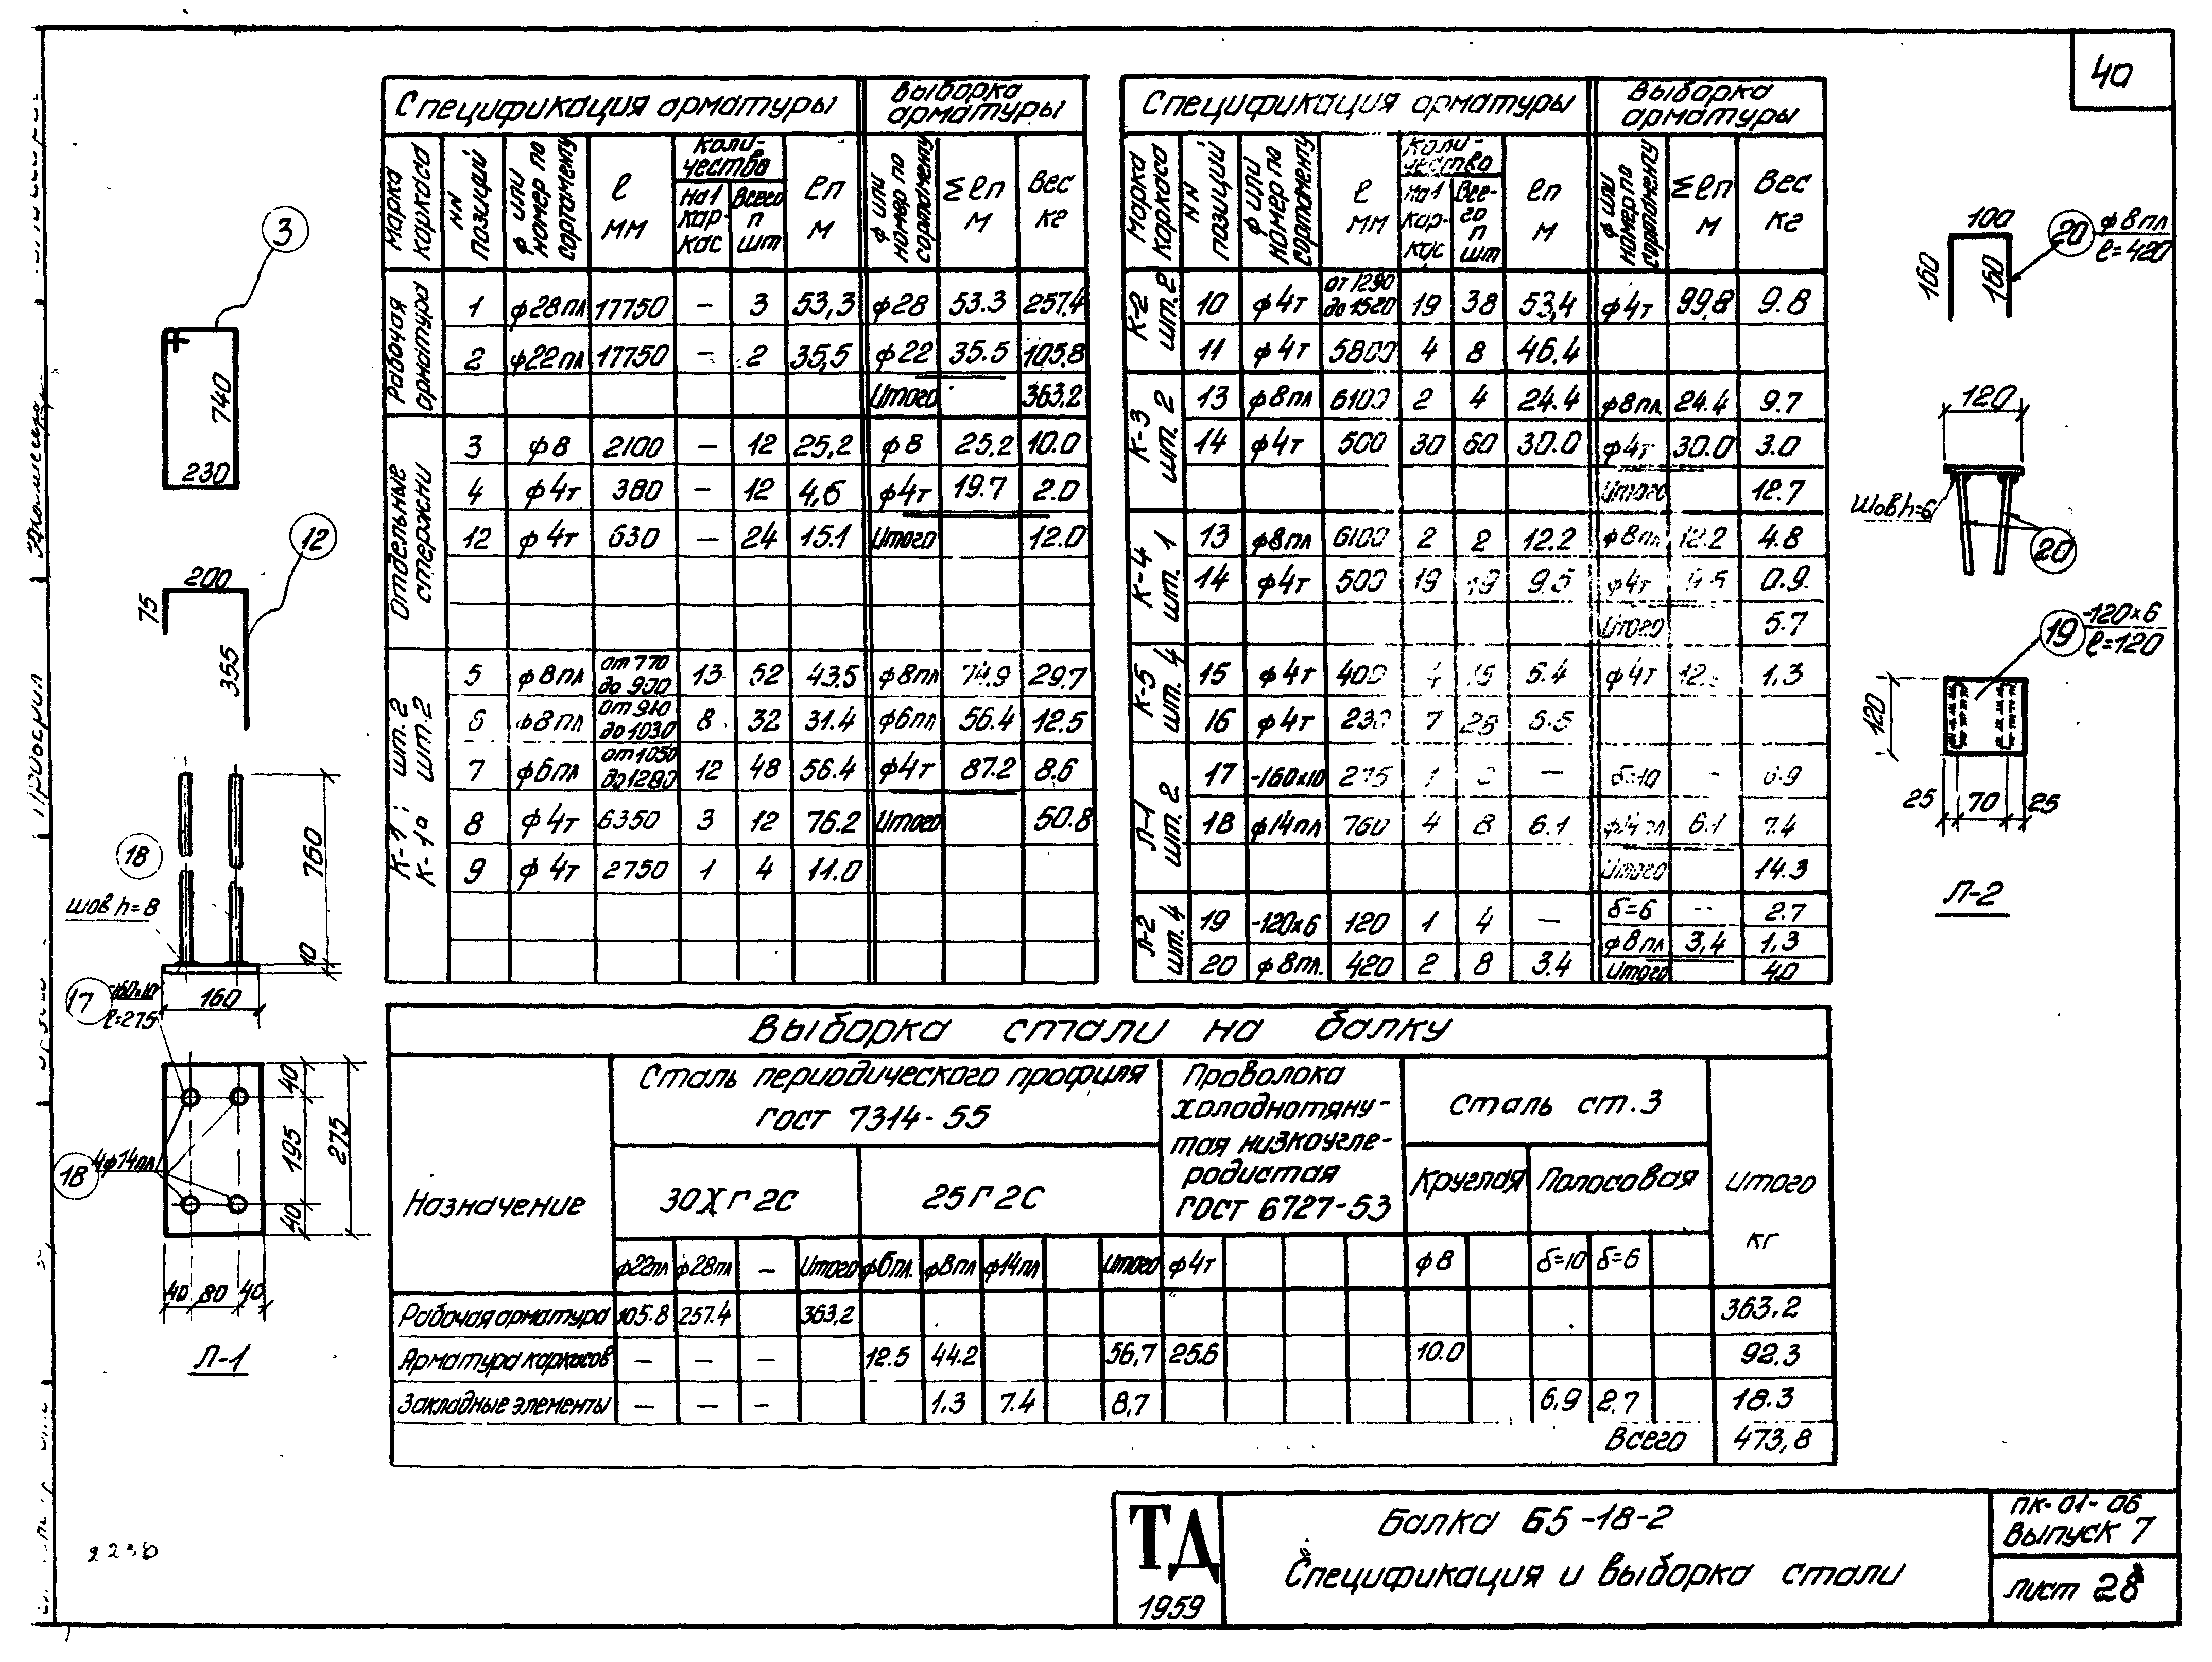 40
Спецификация арматуры | Выборка арматуры
Марка каркаса | NN позиций | ф или номер по сортаменту | ℓ мм | Количество на 1 каркас | Всего п шт | ℓп м | ф или номер по сортаменту | Σℓп м | Вес кг
Рабочая арматура
1 | ф28пл | 17750 | – | 3 | 53,3 | ф28 | 53.3 | 257.4
2 | ф22пл | 17750 | – | 2 | 35,5 | ф22 | 35.5 | 105.8
Итого | 363.2
Отдельные стержни
3 | ф8 | 2100 | – | 12 | 25,2 | ф8 | 25,2 | 10.0
4 | ф4т | 380 | – | 12 | 4,6 | ф4т | 19.7 | 2.0
12 | ф4т | 630 | – | 24 | 15.1 | Итого | 12.0
К-1; шт.2
К-1а шт.2
5 | ф8пл | от 770 до 900 | 13 | 52 | 43.5 | ф8пл | 74.9 | 29.7
6 | ф8пл | от 910 до 1030 | 8 | 32 | 31.4 | ф6пл | 56.4 | 12.5
7 | ф6пл | от 1050 до 1280 | 12 | 48 | 56.4 | ф4т | 87.2 | 8.6
8 | ф4т | 6350 | 3 | 12 | 76.2 | Итого | 50.8
9 | ф4т | 2750 | 1 | 4 | 11.0
Спецификация арматуры | Выборка арматуры
Марка каркаса | NN позиций | ф или номер по сортаменту | ℓ мм | Количество на 1 каркас | Всего п шт | ℓп м | ф или номер по сортаменту | Σℓп м | Вес кг
К-2 шт.2
10 | ф4т | от 1290 до 1520 | 19 | 38 | 53,4 | ф4т | 99,8 | 9.8
11 | ф4т | 5800 | 4 | 8 | 46.4
К-3 шт. 2
13 | ф8пл | 6100 | 2 | 4 | 24.4 | ф8пл | 24.4 | 9.7
14 | ф4т | 500 | 30 | 60 | 30.0 | ф4т | 30.0 | 3.0
Итого | 12.7
К-4 шт. 1
13 | ф8пл | 6100 | 2 | 2 | 12.2 | ф8пл | 12.2 | 4.8
14 | ф4т | 500 | 19 | 19 | 9.5 | ф4т | 9.5 | 0.9
Итого | 5.7
К-5 шт. 4
15 | ф4т | 400 | 4 | 6.4 | ф4т | 1.3
16 | ф4т | 230 | 7 | 28 | 6.5
Л-1 шт. 2
17 | -160х10 | 275 | 1 | — | δ=10 | - | 6.9
18 | ф14пл | 760 | 4 | 8 | 6.1 | ф14пл | 6.1 | 7.4
Итого | 14.3
Л-2 шт. 4
19 | -120х6 | 120 | 1 | 4 | — | δ=6 | -- | 2.7
ф8пл | 3,4 | 1,3
20 | ф8пл. | 420 | 2 | 8 | 3.4 | Итого | 4.0
3
740
230
12
200
75
355
18
760
шов h=8
10
17
-160х10
ℓ=275
160
40
195
275
18
4ф14пл
40
40 80 40
Л-1
100
20
ф8пл
ℓ=420
160
160
120
Шов h=6
20
19
-120х6
ℓ=120
120
25 70 25
Л-2
Выборка стали на балку
Назначение | Сталь периодического профиля ГОСТ 7314-55 | Проволока холоднотянутая низкоуглеродистая ГОСТ 6727-53 | Сталь ст.3 | Итого кг
30ХГ2С | 25Г2С | Круглая | Полосовая
ф22пл | ф28пл | – | Итого | ф6пл. | ф8пл | ф14пл | Итого | ф4т | ф8 | δ=10 | δ=6
Рабочая арматура | 105.8 | 257.4 | 363,2 | 363.2
Арматура каркасов | – | – | – | 12.5 | 44.2 | 56,7 | 25.6 | 10.0 | 92.3
Закладные элементы | – | – | – | 1,3 | 7.4 | 8,7 | 6,9 | 2.7 | 18.3
Всего | 473,8
ТД
1959
Балка Б5-18-2
Спецификация и выборка стали
ПК-01-06
Выпуск 7
Лист 28
Проверил